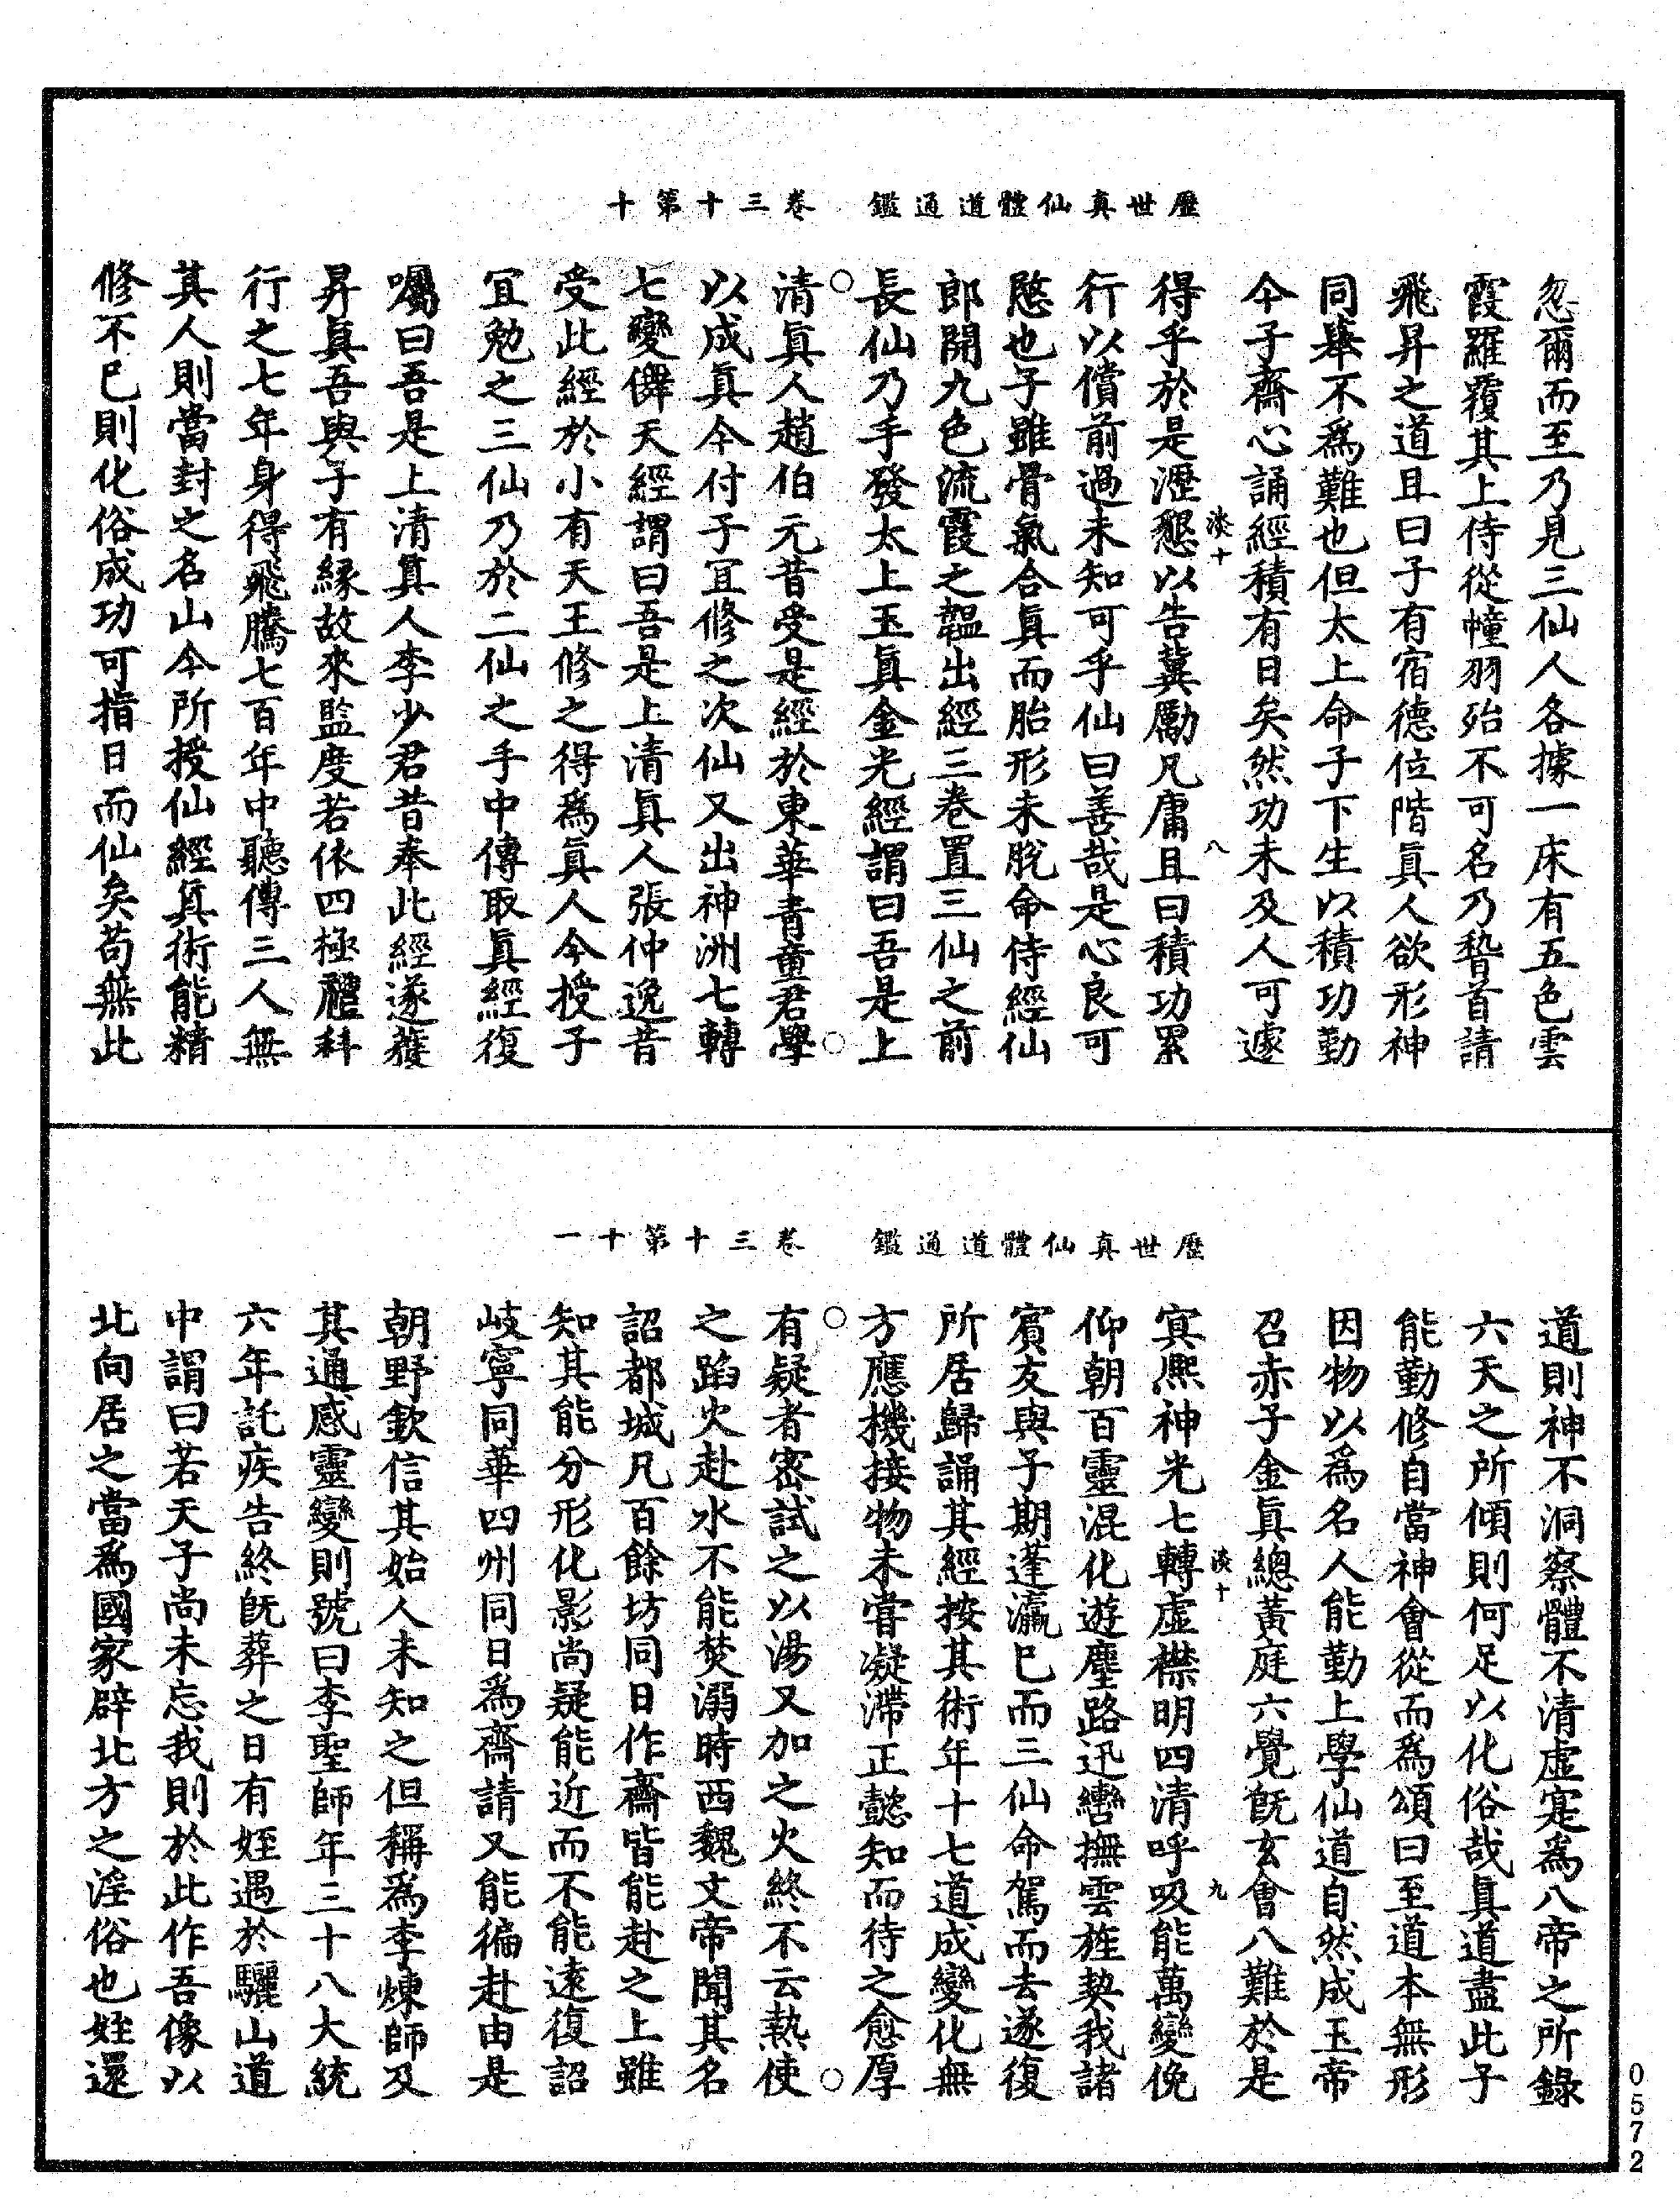 歷世真仙體道通鑑　卷三十第十
忽爾而至乃見三仙人各據一床有五色雲
霞羅覆其上侍從幢羽殆不可名乃稽首請
飛昇之道且曰子有宿德位階眞人欲形神
同舉不爲難也但太上命子下生以積功勤
今子齋心誦經積有日矣然功未及人可遽
淡十　八
得乎於是瀝懇以告冀勵凡庸且曰積功累
行以償前過未知可乎仙曰善哉是心良可
愍也子雖骨氣合眞而胎形未脫命侍經仙
郎開九色流霞之韞出經三卷置三仙之前
長仙乃手發太上玉眞金光經謂曰吾是上
清眞人趙伯元昔受是經於東華青童君學
以成眞今付子宜修之次仙又出神洲七轉
七變儛天經謂曰吾是上清眞人張仲逸昔
受此經於小有天王修之得爲眞人今授子
宜勉之三仙乃於二仙之手中傳取眞經復
囑曰吾是上清眞人李少君昔奉此經遂獲
昇眞吾與子有緣故來監度若依四極禮科
行之七年身得飛騰七百年中聽傳三人無
其人則當封之名山今所授仙經眞術能精
修不已則化俗成功可指日而仙矣苟無此
歷世真仙體道通鑑　卷三十第十一
道則神不洞察體不清虛寔爲八帝之所錄
六天之所傾則何足以化俗哉眞道盡此子
能勤修自當神會從而爲頌曰至道本無形
因物以爲名人能勤上學仙道自然成玉帝
召赤子金眞總黃庭六覺旣玄會八難於是
淡十　九
寘熈神光七轉虛襟明四清呼吸能萬變俛
仰朝百靈混化遊塵路迅轡撫雲旌契我諸
賔友與子期蓬瀛已而三仙命駕而去遂復
所居歸誦其經按其術年十七道成變化無
方應機接物未甞凝滯正懿知而待之愈厚
有疑者密試之以湯又加之火終不云熱使
之蹈火赴水不能焚溺時西魏文帝聞其名
詔都城凡百餘坊同日作齋皆能赴之上雖
知其能分形化影尚疑能近而不能遠復詔
岐寧同華四州同日爲齋請又能徧赴由是
朝野欽信其始人未知之但稱爲李煉師及
其通感靈變則號曰李聖師年三十八大統
六年託疾告終旣葬之日有姪遇於驪山道
中謂曰若天子尚未忘我則於此作吾像以
北向居之當爲國家辟北方之淫俗也姪還
0572